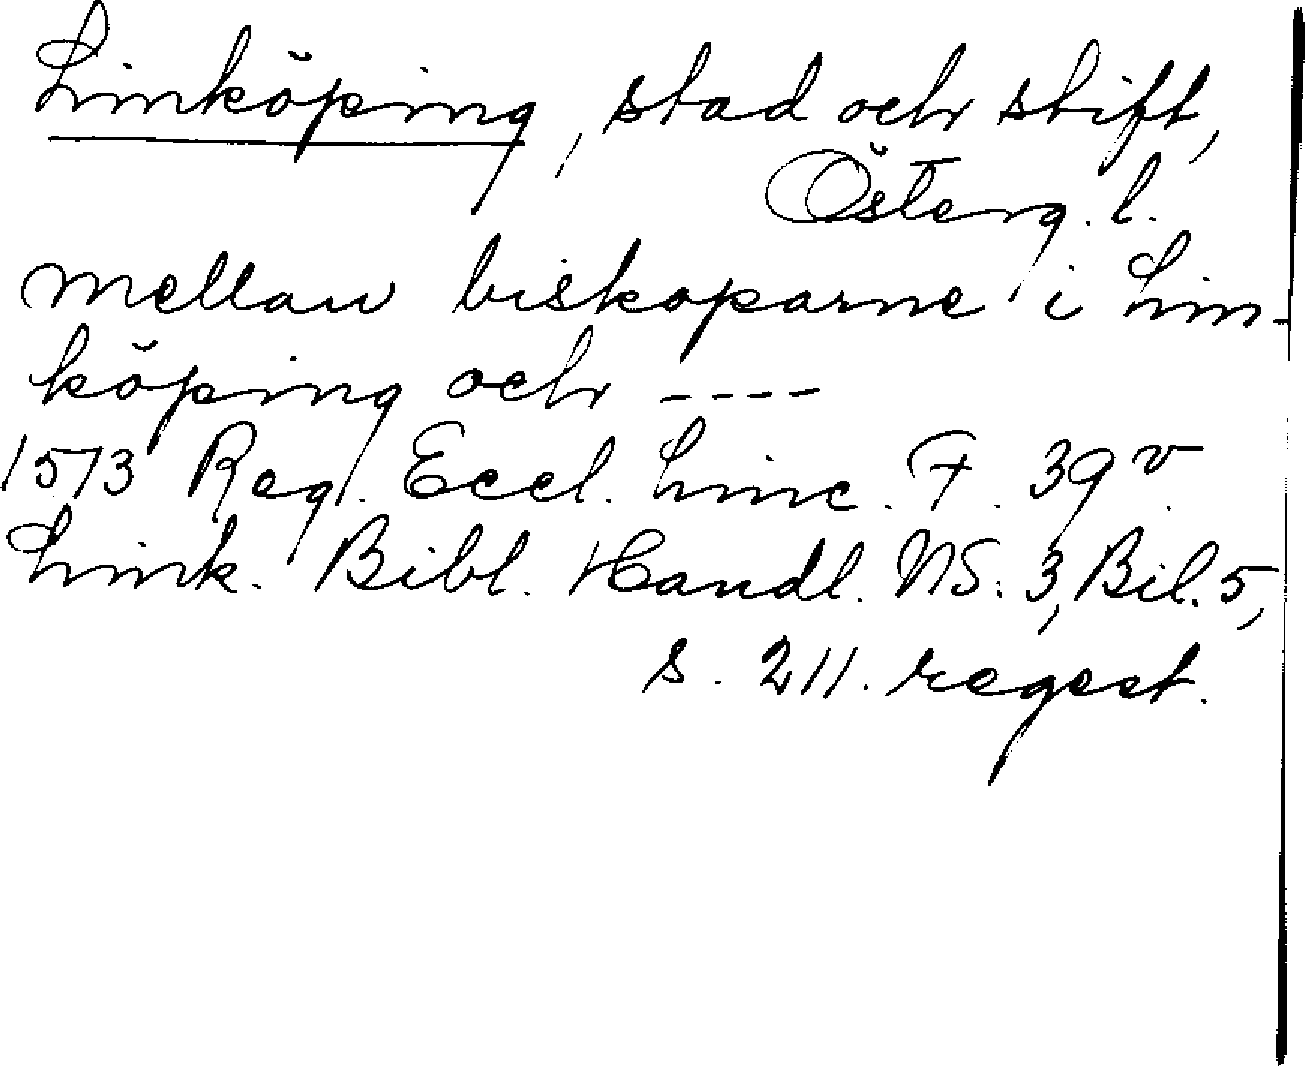 Linköping, stad och stift,
Österg. l.
mellan biskoparne i Lin-
köping och ----
1573 Reg. Eccl. Linc. F. 39v.
Link. Bibl. Handl. NS. 3, Bil. 5,
s. 211. regest.